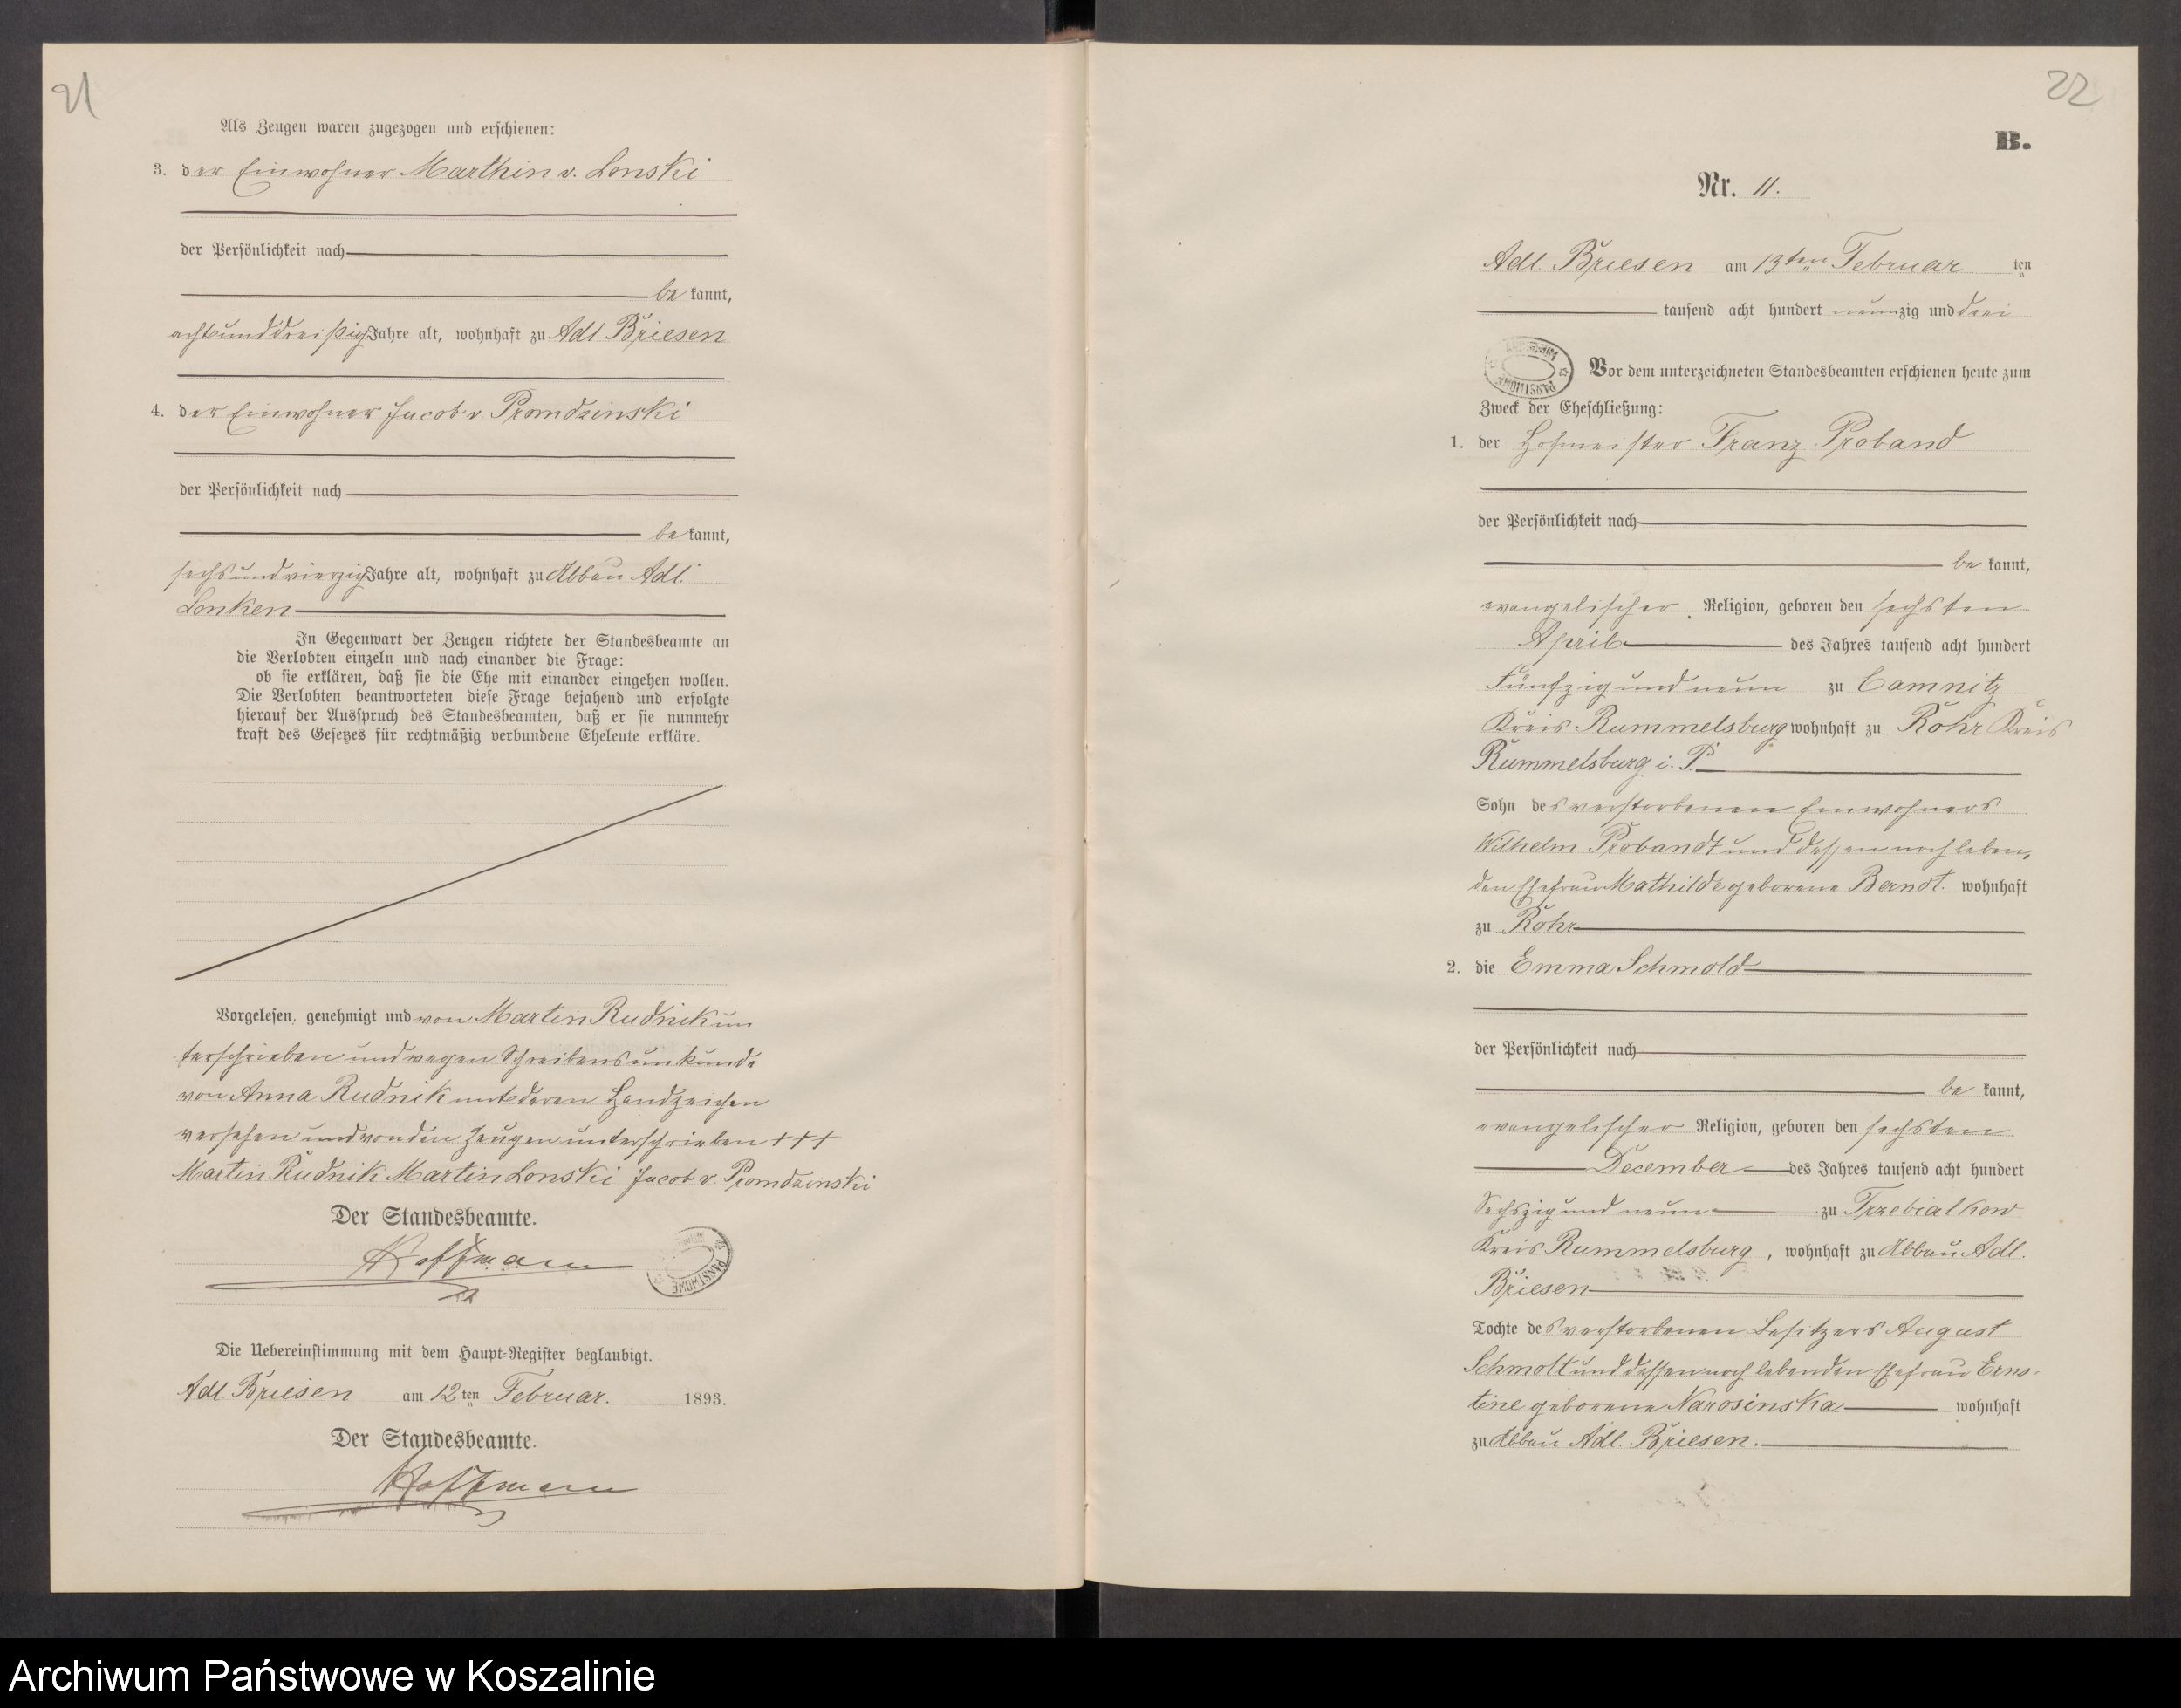 21
Als Zeugen waren zugezogen und erschienen:
3. der Einwohner Marthin v. Lonski
der Persönlichkeit nach
be kannt,
achtunddreißig Jahre alt, wohnhaft zu Adl. Briesen
4. der Einwohner Jacob v. Promdzinski
der Persönlichkeit nach
be kannt,
sechsundvierzig Jahre alt, wohnhaft zu Abbau Adl.
Lonken
In Gegenwart der Zeugen richtete der Standesbeamte an
die Verlobten einzeln und nach einander die Frage:
ob sie erklären, daß sie die Ehe mit einander eingehen wollen.
Die Verlobten beantworteten diese Frage bejahend und erfolgte
hierauf der Ausspruch des Standesbeamten, daß er sie nunmehr
kraft des Gesetzes für rechtmäßig verbundene Eheleute erkläre.
Vorgelesen, genehmigt und von Martin Rudnik un
terschrieben und wegen Schreibensunkunde
von Anna Rudnik mit deren Handzeichen
versehen und von den Zeugen unterschrieben +++
Martin Rudnik Martin Lonski Jacob v. Promdzinski
Der Standesbeamte.
Hoffmann
PANSTWOWE
Die Uebereinstimmung mit dem Haupt-Register beglaubigt.
Adl. Briesen am 12 ten Februar. 1893.
Der Standesbeamte.
Hoffmann
22
B.
Nr. 11.
Adl. Briesen am 13ten Februar ten
tausend acht hundert neunzig und drei
ARCHIWUM PANSTWOWE
Vor dem unterzeichneten Standesbeamten erschienen heute zum
Zweck der Eheschließung:
1. der Hofmeister Franz Proband
der Persönlichkeit nach
be kannt,
evangelischer Religion, geboren den sechsten
April des Jahres tausend acht hundert
Fünfzig und neun zu Camnitz
Kreis Rummelsburg wohnhaft zu Rohr Kreis
Rummelsburg i. P.
Sohn des verstorbenen Einwohners
Wilhelm Probandt und dessen noch leben,
den Ehefrau Mathilde geborene Berndt. wohnhaft
zu Rohr
2. die Emma Schmold
der Persönlichkeit nach
be kannt,
evangelischer Religion, geboren den sechsten
December des Jahres tausend acht hundert
Sechszig und neun zu Trzebiatkow
Kreis Rummelsburg, wohnhaft zu Abbau Adl.
Briesen
Tochte des verstorbenen Besitzers August
Schmolt und dessen noch lebenden Ehefrau Erns-
tine geborene Narosinska wohnhaft
zu Abbau Adl. Briesen.
Archiwum Państwowe w Koszalinie